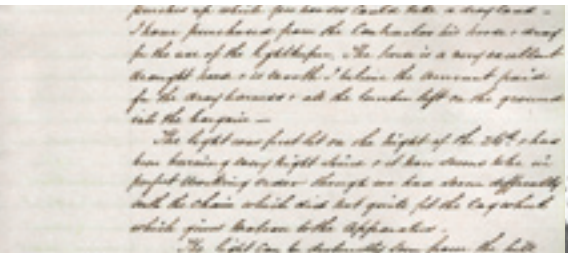 which four horses could take a dray load -
I have purchased from the Contractor his horse & dray
for the use of the lightkeeper. The horse is a very excellent
draught horse & is worth I believe the amount paid
for the dray harness & all the timber left on the ground
into the bargain -
The light was first lit on the night of the 26th & has
been burning every night since & it now seems to be in
perfect working order though we had some difficulty
with the Chain which did not quite fit the Cog wheel
which gives motion to the Apparatus.
The light can be distinctly seen from the hill